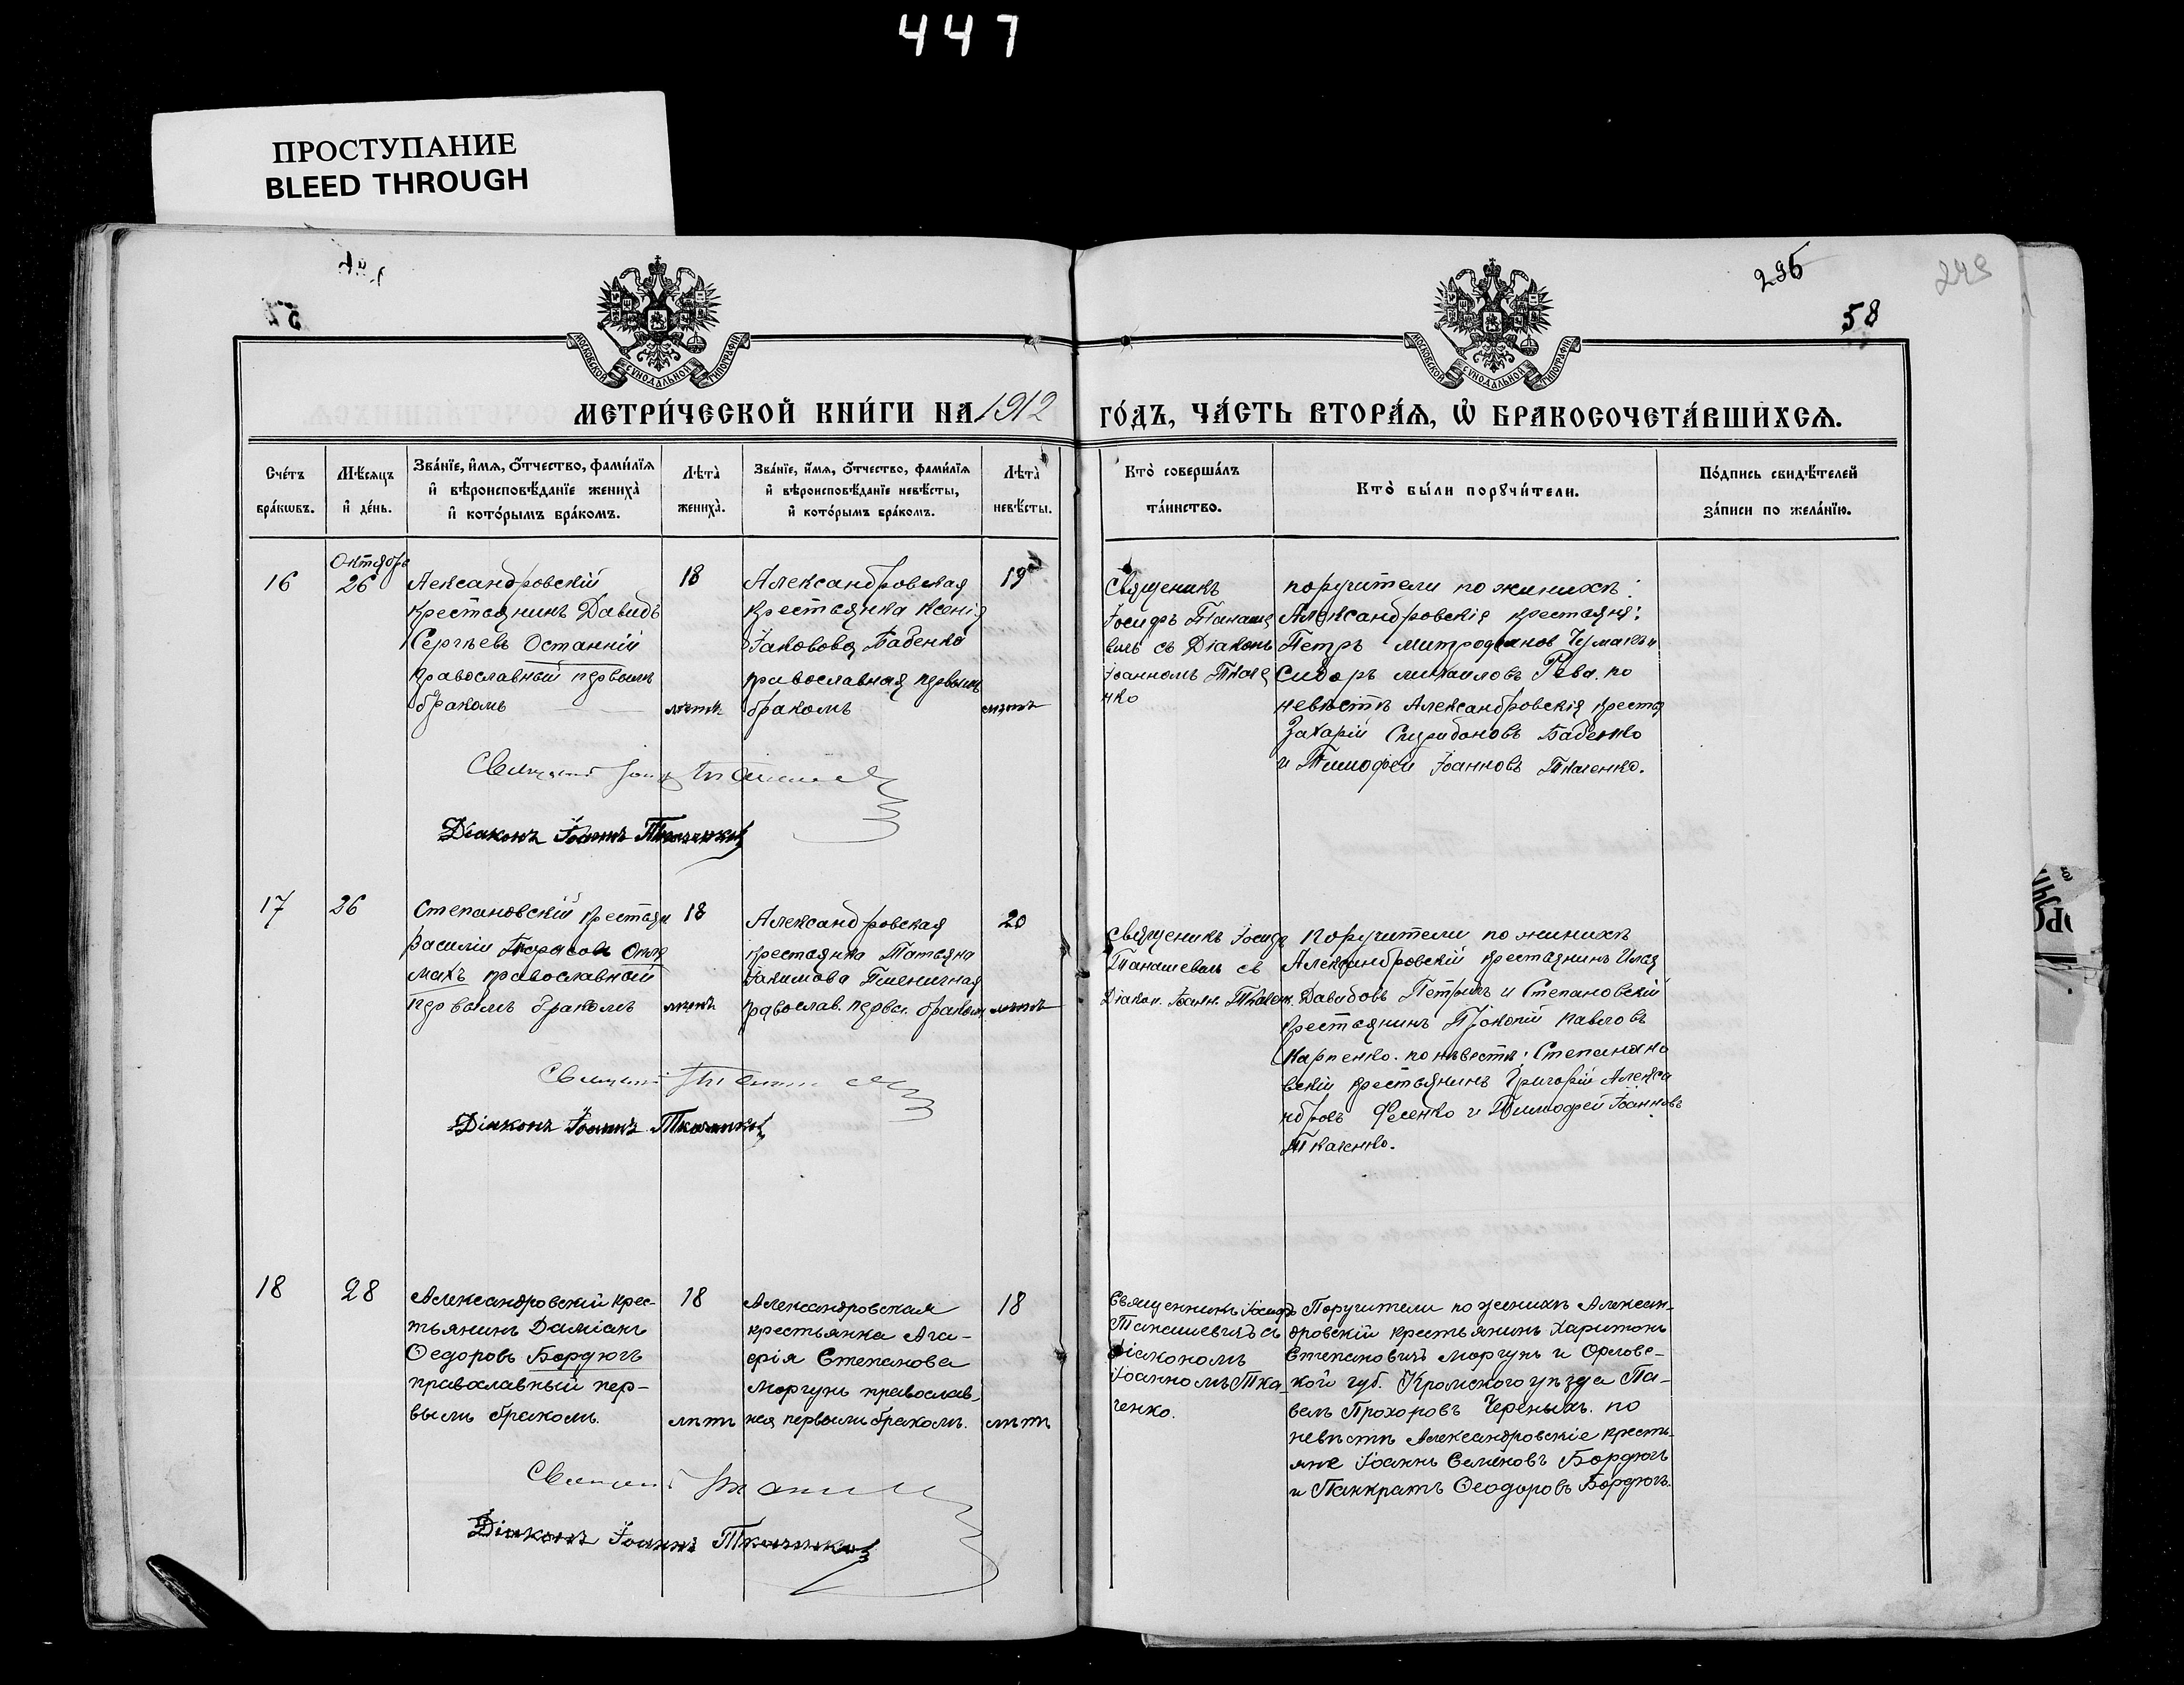 447
ПРОСТУПАНИЕ
BLEED THROUGH
296
249
58
МОСКОВСКОЙ СѴНОДАЛЬНОЙ ТИПОГРАФІИ
МОСКОВСКОЙ СѴНОДАЛЬНОЙ ТИПОГРАФІИ
МЕТРИ́ЧЕСКОЙ КНИ́ГИ НА 1912 ГО́ДЪ, ЧА́СТЬ ВТОРА́Ѧ, Ѡ҆ БРАКОСОЧЕТА́ВШИХСѦ.
Сче́тъ
бра́кѡвъ.
Мѣ́сѧцъ
и҆ де́нь.
Зва́нїе, и҆́мѧ, ѻ҆́тчество, фами́лїѧ
и҆ вѣроисповѣ́данїе жениха̀
и҆ кото́рымъ бра́комъ.
Лѣта̀
жениха̀.
Зва́нїе, и҆́мѧ, ѻ҆́тчество, фами́лїѧ
и҆ вѣроисповѣ́данїе невѣ́сты,
и҆ кото́рымъ бра́комъ.
Лѣта̀
невѣ́сты.
Кто̀ соверша́лъ
та́инство.
Кто̀ бы́ли порꙋчи́тели.
По́дпись свидѣ́телей
за́писи по жела́нїю.
16
Октябрь
26
Аександровскій
крестьянинъ Давидъ
Сергѣевъ Останній
православный первымъ
бракомъ
18
лѣтъ
Александровская
крестьянка Ксенія
Іаковова Бабенко
православная первымъ
бракомъ
19
лѣтъ
Священикъ
Іосифъ Танаше
вичъ съ Діакон
Іоанномъ Ткаче
нко
поручители по жинихѣ:
Александровскія крестьяня:
Петръ Митрофанов Чумакъ и
Сидоръ Михаиловъ Рева. по
невѣстѣ Александровскія крестья
Захарій Спиридоновъ Бабенко
и Тимофей Іоанновъ Ткаченко.
Діаконъ Іоаннъ Ткаченко
17
26
Степановскій крестьян
Василій Тарасовъ
махъ православный
первымъ бракомъ
18
лѣтъ
Александровская
крестьянка Татьяна
Іакимова Пшеничная
православ. первы. браком.
20
лѣтъ
Священикъ Іосиф
Танашевичъ съ
Діакон. Іоанн. Ткаченк.
Поручители по жинихѣ
Александровскій крестьянинъ Илья
Давидовъ Петрикъ и Степановскій
крестьянинъ Прокопій Павловъ
Карпенко. по нѣвестѣ: Степанано
вскій крестьянинъ Григорій Алекса
ндровъ Фесенко и Тимофей Іоанновъ
Ткаченко.
Діаконъ Іоаннъ Ткаченко
18
28
Александровскій крес-
тьянинъ Даміанъ
Ѳедоровъ Бордюгъ
православный пер-
вымъ бракомъ.
18
лѣтъ
Александровская
крестьянка Ага-
фія Степанова
Моргунъ православ-
ная первымъ бракомъ.
18
лѣтъ
Священникъ Іосифъ
Танашевичъ съ
діакономъ
Іоанномъ Тка-
ченко.
Поручители по женихѣ Алексан-
дровскій крестьянинъ Харитонъ
Степановичъ Моргунъ и Орловс-
кой губ. Кромскогоуѣзда Па-
велъ Прохоровъ Черныхъ. по
невѣстѣ Александровскіе кресть-
яне Іоаннъ Семеновъ Бордюгъ
и Панкратъ Ѳеодоровъ Бордюгъ.
Діаконъ Іоаннъ Ткаченко